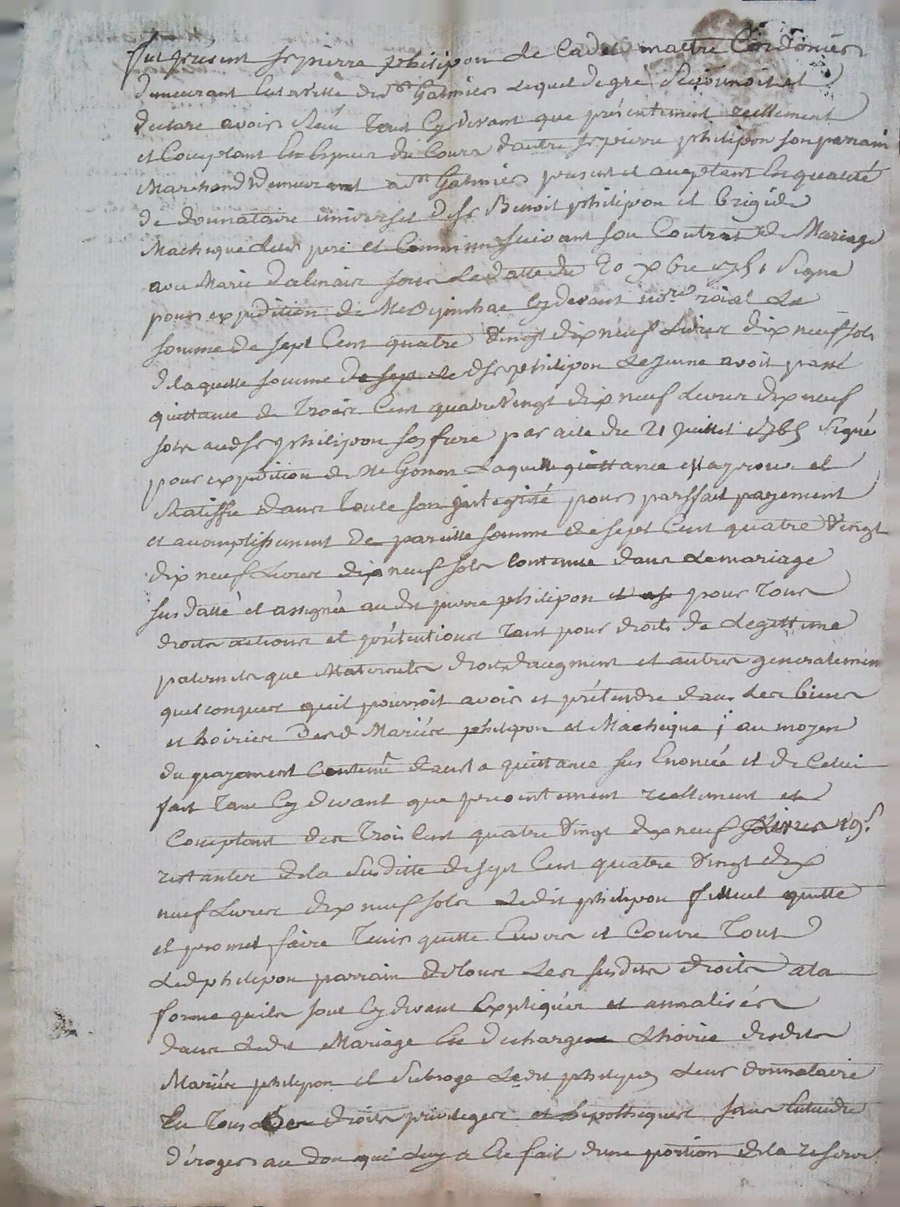 fut present sr pierre philipon le cadet maitre Cordonier
demeurant en la ville de st Galmier lequel de gré
declare avoir Receu tant Cydevant que présentement reellement
et Comptant En Espece du Cours d'autre sr pierre philipon son parrain
Marchand demeurant a st Galmier present et aceptant En qualité
de donnataire universel de sr Benoit philipon et brigide
Machique leurs pere et Commun suivant son Contrat de Mariage
avec Marie dalmais sous la datte du 20 xbre 1751 Signé
pour expedition de Me cydevant roial La
somme de sept Cent quatre vingt dix neuf Livres dix neuf sols
de laquelle somme ledt sr philipon le jeune avoit passé
quittance de Trois Cent quatre vingt dix neuf Livres dix neuf
sols audt sr philipon son frere par acte du 21 Juillet 1765 Signé
pour expedition de Me Gonon laquelle quittance il aprouve et
Ratiffie dans Toute son jntegrité pour parffait payement
et acomplissement de pareille somme de sept Cent quatre vingt
dix neuf Livres dix neuf sols contenue dans le mariage
sus datté et assignée audit pierre philipon pour Tous
droits actions et prétentions Tant pour droits de Legittime
paternels que Maternels droits daugment et autres generalement
quelconques quil pourroit avoir et prétendre dans les biens
et hoiries desd Mariés philipon et Machique ; au moyen
du payement Contenu dans la quittance sus Enoncée et de Celui
fait Tant Cy devant que presentement reellement et
Comptant des Trois Cent quatre vingt dix neuf Livres 19s
restantes de la Susditte de sept Cent quatre vingt dix
neuf Livres dix neuf sols Ledit philipon filleul quitte
et promet faire Tenir quitte Envers et Contre Tout
Led philipon parrain de Tous Les susdits droits a la
forme quils sont Cy devant Expliqués et annalisés
dans Ledit Mariage En decharge Lhoirie desdits
Mariés philipon et Subroge Ledit philipon Leur donnataire
En Tous Les droits privileges et hipotheques sans Entendre
d'eroger au don qui Luy a Eté fait d'une portion de la reserve